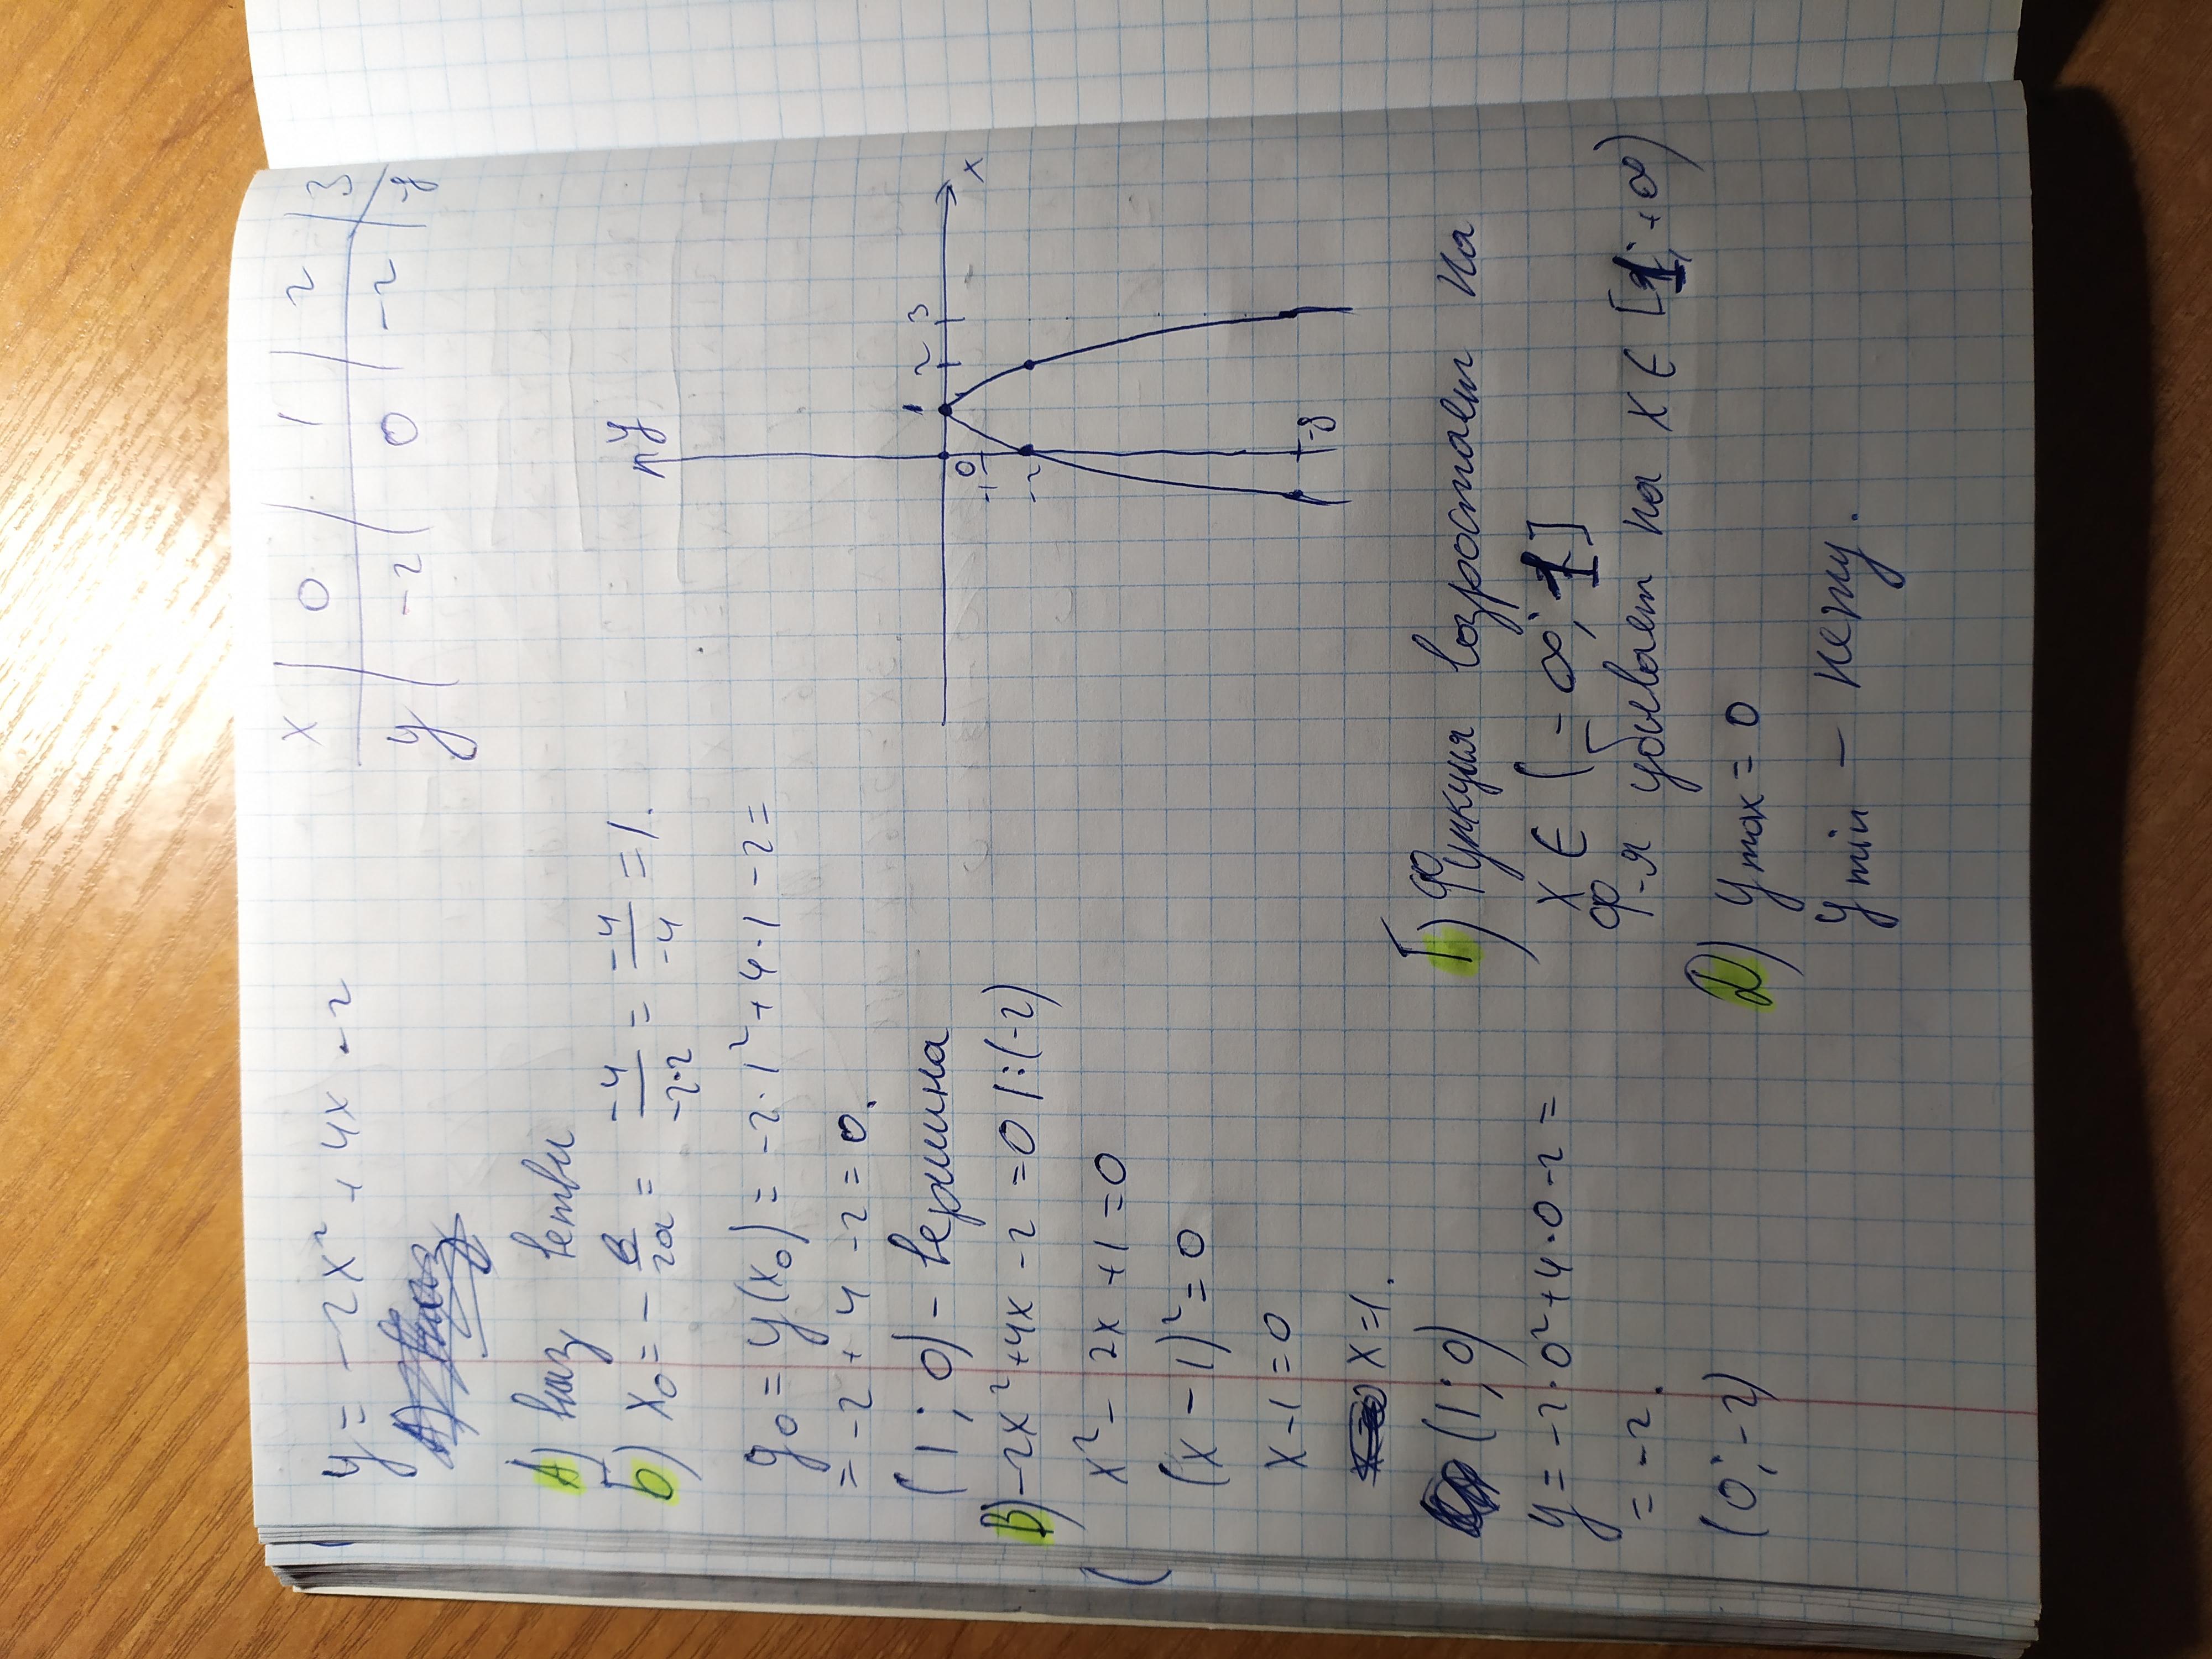 y = -2x² + 4x - 2
x | 0 | 1 | 2 | 3
y | -2 | 0 | -2 | -8
А) вниз ветви
Б) x₀ = - в/2a = -4/-2·2 = -4/-4 = 1.
y₀ = y(x₀) = -2·1² + 4·1 - 2 =
= -2 + 4 - 2 = 0.
(1; 0) - вершина
В) -2x² + 4x - 2 = 0 |:(-2)
x² - 2x + 1 = 0
(x - 1)² = 0
x - 1 = 0
x = 1.
(1; 0)
y = -2·0² + 4·0 - 2 =
= -2.
(0; -2)
y
1 2 3 x
0
-1
-2
-8
Г) Функция возростает на
x ∈ (-∞; 1]
ф-я убывает на x ∈ [1; +∞)
Д) y max = 0
y min - нету.